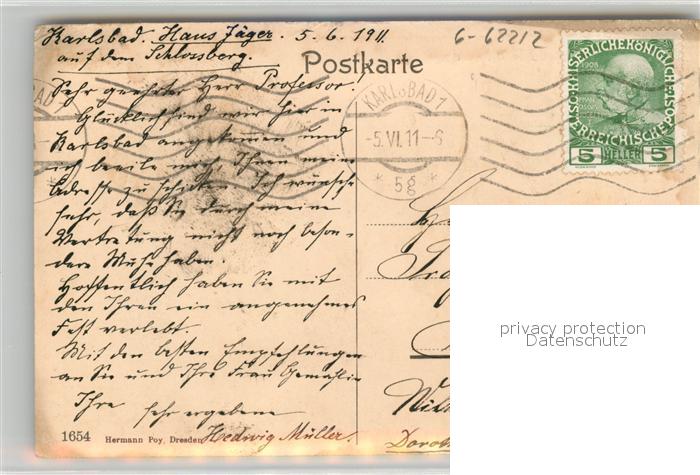 Karlsbad. Haus Jäger. 5. 6. 1911.
auf dem Schlossberg.
6-62212
Postkarte
Sehr geehrter Herr Professor!
Glücklich sind wir hier in
Karlsbad angekommen und
ich beeile mich, Ihnen meine
Adresse zu schicken. Ich wünsche
sehr, daß Sie durch meine
Vertretung nicht noch beson-
dere Mühe haben.
Hoffentlich haben Sie mit
den Ihren ein angenehmes
Fest verlebt.
Mit den besten Empfehlungen
an Sie und Ihre Frau Gemahlin
Ihre sehr ergebene
Hedwig Müller.
1654 Hermann Poy, Dresden
KARLSBAD 1
-5.VI.11-8
* 5g *
KAISERLICHEKÖNIGLICHE
ÖSTERREICHISCHE POST
1908
5 HELLER 5
privacy protection
Datenschutz